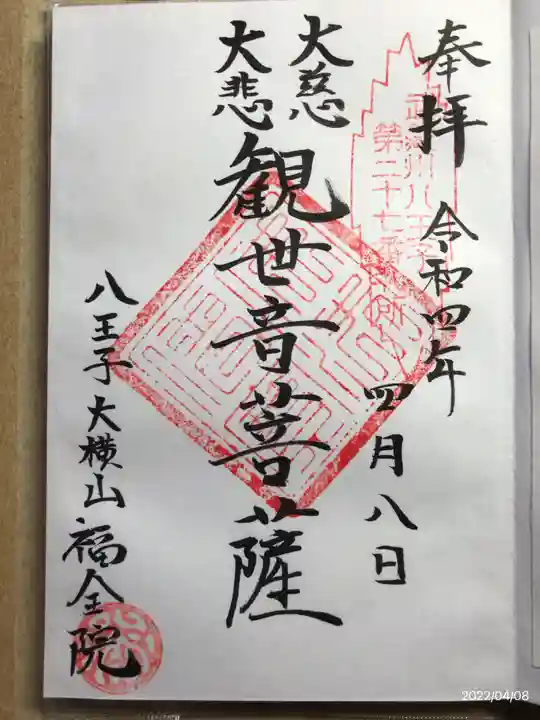 奉拝
令和四年
四月八日
第二十七番
大慈
大悲
観世音菩薩
八王子大横山
福全院
2022/04/08